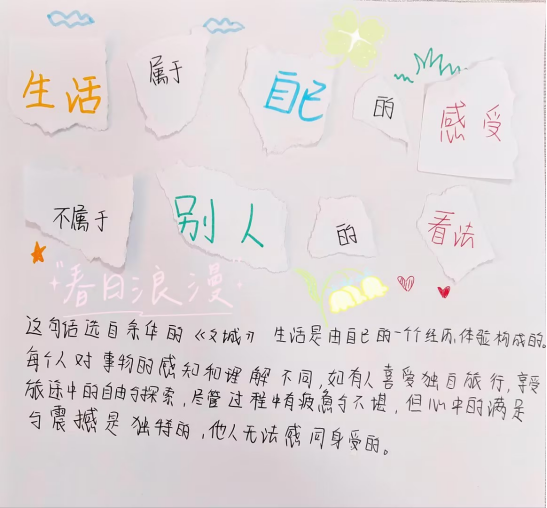 生活 属于 自己 的 感受
不属于 别人 的 看法
"春日浪漫"
这句话选自余华的《文城》 生活是由自己的一个个经历,体验构成的。
每个人对事物的感知和理解不同,如有人喜爱独自旅行,享受
旅途中的自由与探索,尽管过程中有疲惫与不堪,但心中的满足
与震撼是独特的,他人无法感同身受的。